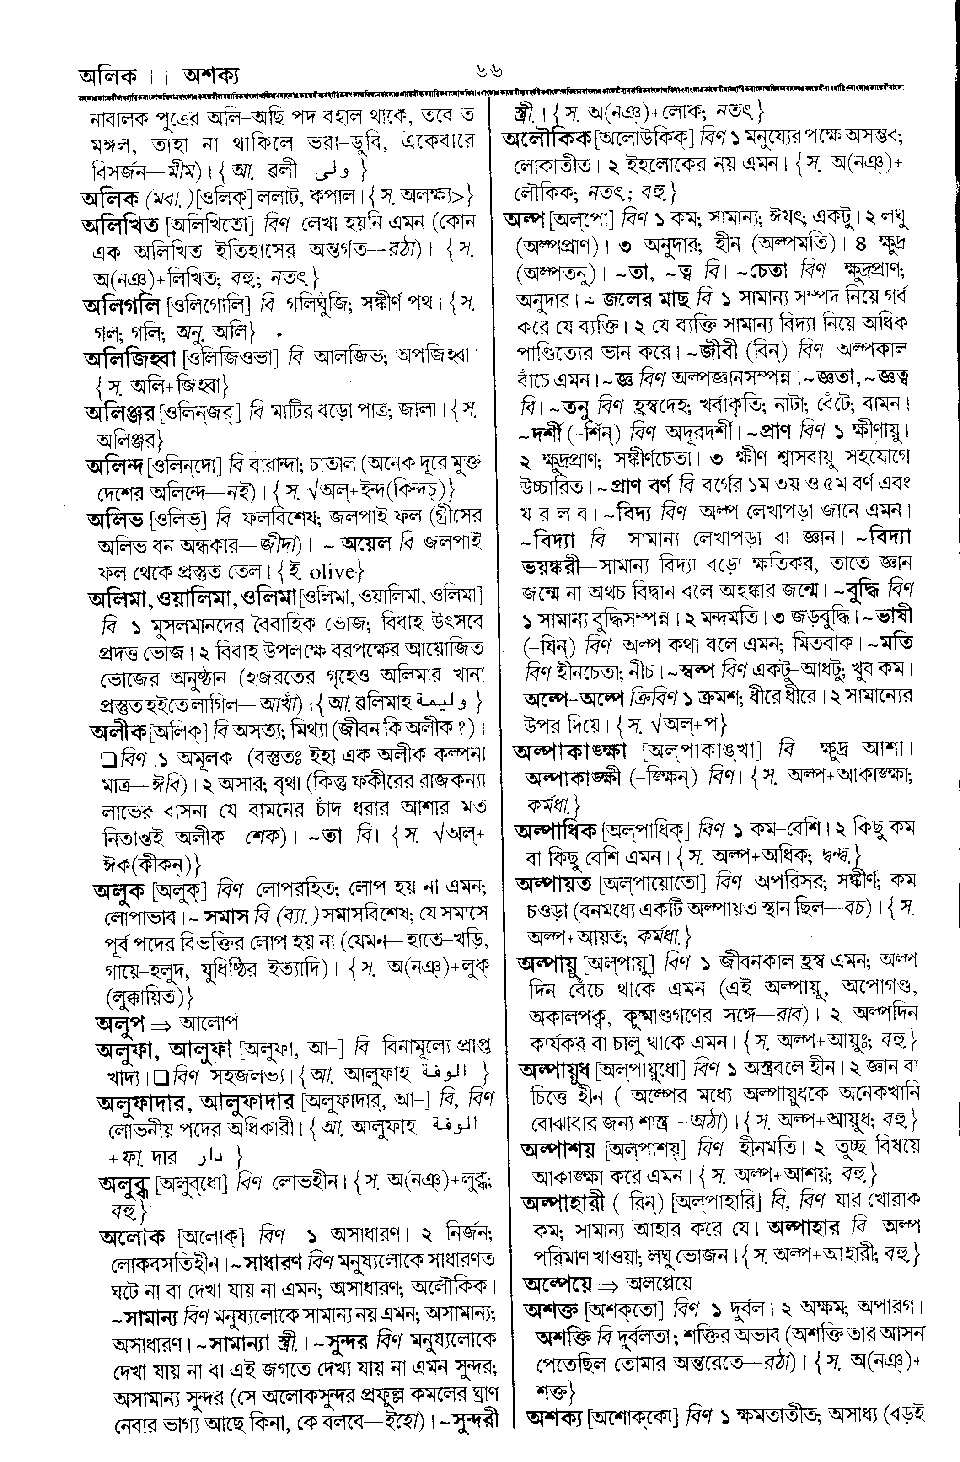 অলিক ।। অশক্য
৬৬
নাবালক পুত্রের অলি-অছি পদ বহাল থাকে, তবে ত
মঙ্গল, তাহা না থাকিলে ভরা-ডুবি, একেবারে
বিসর্জন—মীম)। {আ. ৱলী ولى }
অলিক (মবা.) [ওলিক্] ললাট, কপাল। {স. অলক্ষা>}
অলিখিত [অলিখিতো] বিণ লেখা হয়নি এমন (কোন
এক অলিখিত ইতিহাসের অন্তর্গত—রঠা)। {স.
অ(নঞ)+লিখিত; বহু; নতৎ}
অলিগলি [ওলিগোলি] বি গলিঘুঁজি; সঙ্কীর্ণ পথ। {স.
গল; গলি; অনু. অলি}
অলিজিহ্বা [ওলিজিওভা] বি আলজিভ; অপজিহ্বা
{স. অলি+জিহ্বা}
অলিঞ্জর [ওলিন্‌জর্] বি মাটির বড়ো পাত্র; জালা। {স.
অলিঞ্জর}
অলিন্দ [ওলিন্‌দো] বি বারান্দা; চাতাল (অনেক দূরে মুক্ত
দেশের অলিন্দে—নই)। {স. √অল্+ইন্দ(কিন্দচ্)}
অলিভ [ওলিভ্] বি ফলবিশেষ; জলপাই ফল (গ্রীসের
অলিভ বন অন্ধকার—জীদা)। ~ অয়েল বি জলপাই
ফল থেকে প্রস্তুত তেল। {ই. olive}
অলিমা, ওয়ালিমা, ওলিমা [ওলিমা, ওয়ালিমা, ওলিমা]
বি ১ মুসলমানদের বৈবাহিক ভোজ; বিবাহ উৎসবে
প্রদত্ত ভোজ। ২ বিবাহ উপলক্ষে বরপক্ষের আয়োজিত
ভোজের অনুষ্ঠান (হজরতের গৃহেও অলিমার খানা
প্রস্তুত হইতে লাগিল—আখাঁ)। {আ. ৱলিমাহ وليمة }
অলীক [অলিক্] বি অসত্য; মিথ্যা (জীবন কি অলীক?)।
❑ বিণ ১ অমূলক (বস্তুতঃ ইহা এক অলীক কল্পনা
মাত্র—ঈবি)। ২ অসার; বৃথা (কিন্তু ফকীরের রাজকন্যা
লাভের বাসনা যে বামনের চাঁদ ধরার আশার মত
নিতান্তই অলীক শেক)। ~তা বি। {স. √অল্+
ঈক(কীকন্)}
অলুক [অলুক্] বিণ লোপরহিত; লোপ হয় না এমন;
লোপাভাব। ~ সমাস বি (ব্যা.) সমাসবিশেষ; যে সমাসে
পূর্ব পদের বিভক্তির লোপ হয় না (যেমন—হাতে-খড়ি,
গায়ে-হলুদ, যুধিষ্ঠির ইত্যাদি)। {স. অ(নঞ)+লুক্
(লুক্কায়িত)}
অলুপ ⇒ আলোপ
অলুফা, আলুফা [অলুফা, আ-] বি বিনামূল্যে প্রাপ্ত
খাদ্য। ❑ বিণ সহজলভ্য। {আ. আলুফাহ الوفة }
অলুফাদার, আলুফাদার [অলুফাদার, আ-] বি, বিণ
লোভনীয় পদের অধিকারী। {আ. আলুফাহ الوفة
+ফা. দার دار }
অলুব্ধ [অলুব্‌ধো] বিণ লোভহীন। {স. অ(নঞ)+লুব্ধ;
বহু}
অলোক [অলোক্] বিণ ১ অসাধারণ। ২ নির্জন;
লোকবসতিহীন। ~সাধারণ বিণ মনুষ্যলোকে সাধারণত
ঘটে না বা দেখা যায় না এমন; অসাধারণ; অলৌকিক।
~সামান্য বিণ মনুষ্যলোকে সামান্য নয় এমন; অসামান্য;
অসাধারণ। ~সামান্যা স্ত্রী.। ~সুন্দর বিণ মনুষ্যলোকে
দেখা যায় না বা এই জগতে দেখা যায় না এমন সুন্দর;
অসামান্য সুন্দর (সে অলোকসুন্দর প্রফুল্ল কমলের ঘ্রাণ
নেবার ভাগ্য আছে কিনা, কে বলবে—ইহো)। ~সুন্দরী
স্ত্রী.। {স. অ(নঞ)+লোক; নতৎ}
অলৌকিক [অলোউকিক্] বিণ ১ মনুষ্যের পক্ষে অসম্ভব;
লোকাতীত। ২ ইহলোকের নয় এমন। {স. অ(নঞ)+
লৌকিক; নতৎ; বহু}
অল্প [অল্‌পো] বিণ ১ কম; সামান্য; ঈষৎ; একটু। ২ লঘু
(অল্পপ্রাণ)। ৩ অনুদার; হীন (অল্পমতি)। ৪ ক্ষুদ্র
(অল্পতনু)। ~তা, ~ত্ব বি। ~চেতা বিণ ক্ষুদ্রপ্রাণ;
অনুদার। ~ জলের মাছ বি ১ সামান্য সম্পদ নিয়ে গর্ব
করে যে ব্যক্তি। ২ যে ব্যক্তি সামান্য বিদ্যা নিয়ে অধিক
পাণ্ডিত্যের ভান করে। ~জীবী (বিন্) বিণ অল্পকাল
বাঁচে এমন। ~জ্ঞ বিণ অল্পজ্ঞানসম্পন্ন। ~জ্ঞতা, ~জ্ঞত্ব
বি। ~তনু বিণ হ্রস্বদেহ; খর্বাকৃতি; নাটা; বেঁটে; বামন।
~দর্শী (-র্শিন্) বিণ অদূরদর্শী। ~প্রাণ বিণ ১ ক্ষীণায়ু।
২ ক্ষুদ্রপ্রাণ; সঙ্কীর্ণচেতা। ৩ ক্ষীণ শ্বাসবায়ু সহযোগে
উচ্চারিত। ~প্রাণ বর্ণ বি বর্গের ১ম ৩য় ও ৫ম বর্ণ এবং
য র ল ব। ~বিদ্য বিণ অল্প লেখাপড়া জানে এমন।
~বিদ্যা বি সামান্য লেখাপড়া বা জ্ঞান। ~বিদ্যা
ভয়ঙ্করী—সামান্য বিদ্যা বড়ো ক্ষতিকর, তাতে জ্ঞান
জন্মে না অথচ বিদ্বান বলে অহঙ্কার জন্মে। ~বুদ্ধি বিণ
১ সামান্য বুদ্ধিসম্পন্ন। ২ মন্দমতি। ৩ জড়বুদ্ধি। ~ভাষী
(–ষিন্) বিণ অল্প কথা বলে এমন; মিতবাক। ~মতি
বিণ হীনচেতা; নীচ। ~স্বল্প বিণ একটু-আধটু; খুব কম।
অল্পে-অল্পে ক্রিবিণ ১ ক্রমশ; ধীরে ধীরে। ২ সামান্যের
উপর দিয়ে। {স. √অল্+প}
অল্পাকাঙ্ক্ষা [অল্‌পাকাঙ্খা] বি ক্ষুদ্র আশা।
অল্পাকাঙ্ক্ষী (–ঙ্ক্ষিন্) বিণ। {স. অল্প+আকাঙ্ক্ষা;
কর্মধা.}
অল্পাধিক [অল্‌পাধিক্] বিণ ১ কম-বেশি। ২ কিছু কম
বা কিছু বেশি এমন। {স. অল্প+অধিক; দ্বন্দ্ব.}
অল্পায়ত [অল্‌পায়োতো] বিণ অপরিসর; সঙ্কীর্ণ; কম
চওড়া (বনমধ্যে একটি অল্পায়ত স্থান ছিল—বচ)। {স.
অল্প+আয়ত; কর্মধা.}
অল্পায়ু [অল্‌পায়ু] বিণ ১ জীবনকাল হ্রস্ব এমন; অল্প
দিন বেঁচে থাকে এমন (এই অল্পায়ু, অপোগণ্ড,
অকালপক্ব, কুষ্মাণ্ডগণের সঙ্গে—রাব)। ২ অল্পদিন
কার্যকর বা চালু থাকে এমন। {স. অল্প+আয়ুঃ; বহু}
অল্পায়ুধ [অল্‌পায়ুধো] বিণ ১ অস্ত্রবলে হীন। ২ জ্ঞান বা
চিত্তে হীন ( অল্পের মধ্যে অল্পায়ুধকে অনেকখানি
বোঝাবার জন্য শাস্ত্র - অঠা)। {স. অল্প+আয়ুধ; বহু}
অল্পাশয় [অল্‌পাশয়্] বিণ হীনমতি। ২ তুচ্ছ বিষয়ে
আকাঙ্ক্ষা করে এমন। {স. অল্প+আশয়; বহু.}
অল্পাহারী ( রিন্) [অল্‌পাহারি] বি, বিণ যার খোরাক
কম; সামান্য আহার করে যে। অল্পাহার বি অল্প
পরিমাণ খাওয়া; লঘু ভোজন। {স. অল্প+আহারী; বহু}
অল্পেয়ে ⇒ অলপ্পেয়ে
অশক্ত [অশক্‌তো] বিণ ১ দুর্বল। ২ অক্ষম; অপারগ।
অশক্তি বি দুর্বলতা; শক্তির অভাব (অশক্তি তার আসন
পেতেছিল তোমার অন্তরেতে—রঠা)। {স. অ(নঞ)+
শক্ত}
অশক্য [অশোক্‌কো] বিণ ১ ক্ষমতাতীত; অসাধ্য (বড়ই